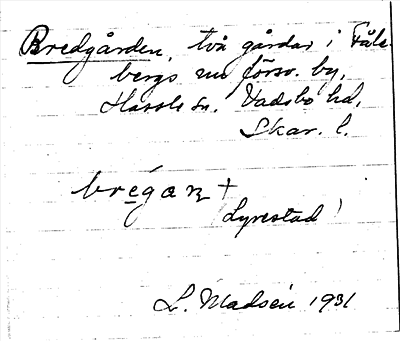 Bredgården, två gårdar i Fåle-
bergs nu försv. by,
Hassle sn. Vadsbo hd,
Skar. l.
bregaɴ +
(Lyrestad)
L. Madsén 1931